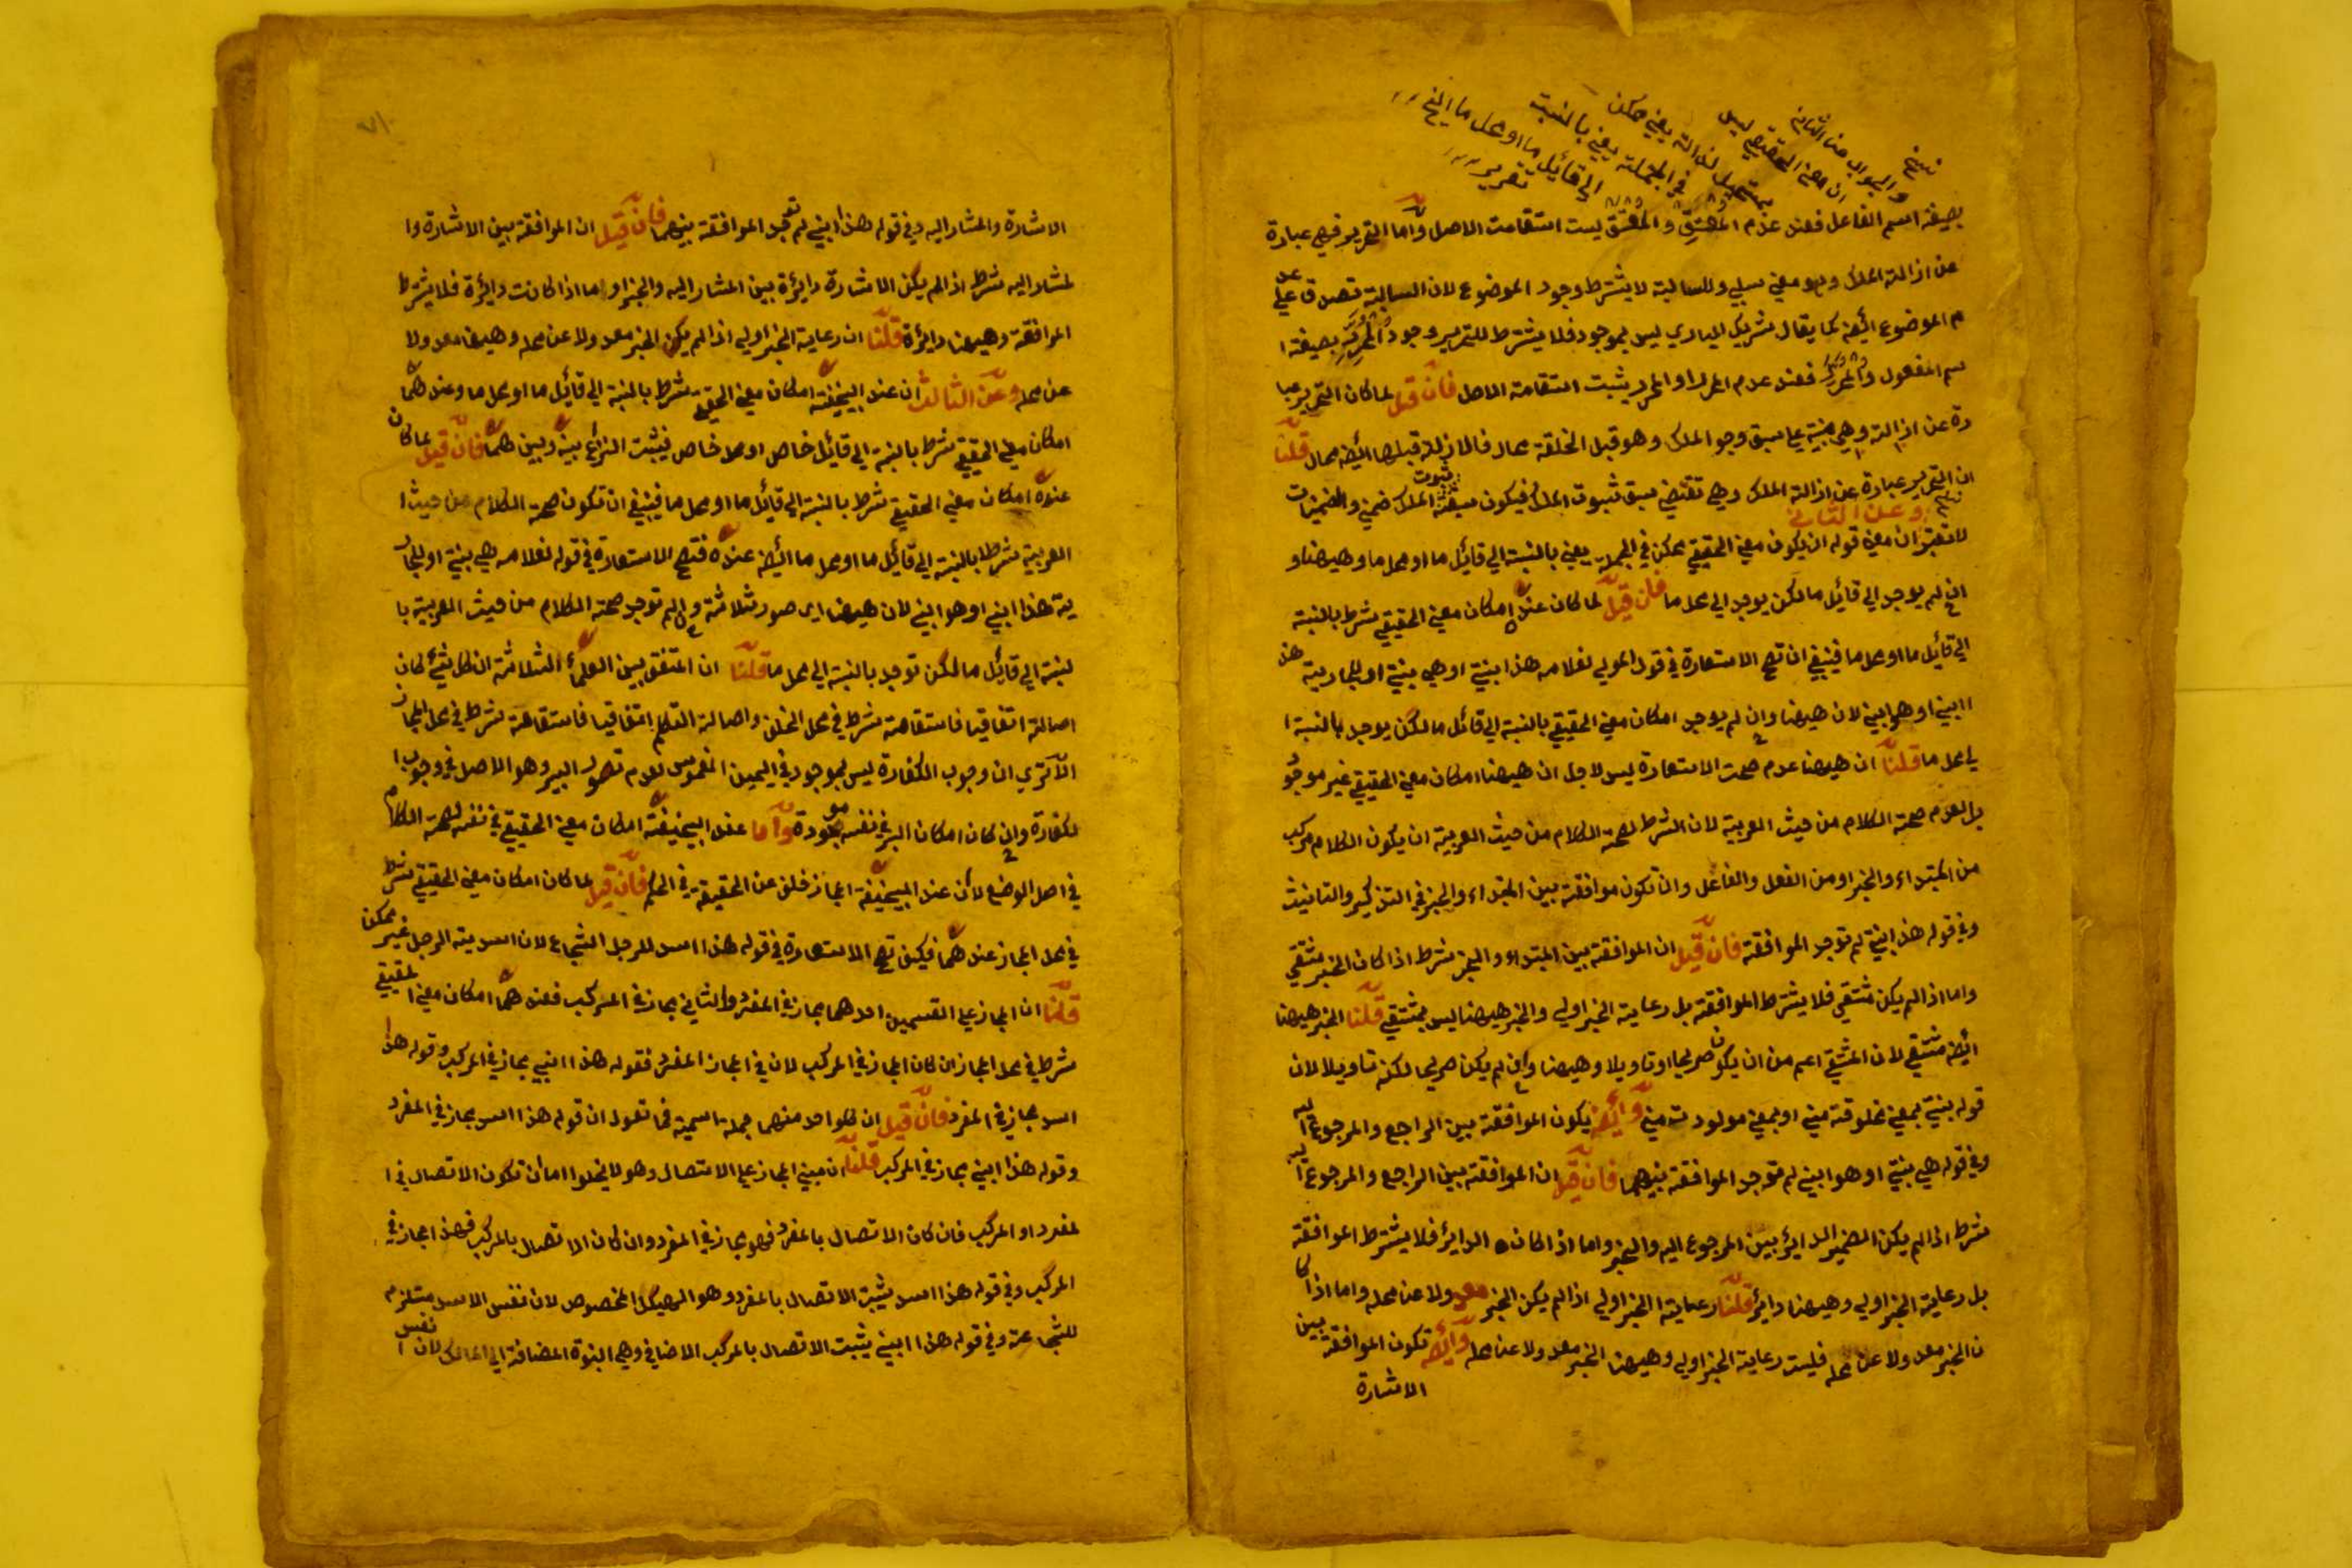 نسخ
والجواب عن الثاني
ان معنى الحقيقي ليس
بمستحيل لذاته يعني ممكن
في الجملة يعني بالنسبة
الى قائل ما او محل ما الخ
تقرير
بصيغة اسم الفاعل فعند عدم المعتِق والمعتَق ليست استقامت الاصل واما التحرير فهي عبارة
عن ازالة الملك وهو معنى سلبي وللسالبة لا يشترط وجود الموضوع لان السالبة تصدق على عد
م الموضوع ايضا كما يقال شريك الباري ليس بموجود فلا يشترط للتحرير وجود المحرر بصيغة ا
سم المفعول والمحرر فعند عدم المحرر او المحرر يثبت استقامة الاصل فان قيل لما كان التحرير عبا
رة عن ازالة وهي مبنية على سبق وجو الملك وهو قبل الخلقة محال فالازالة قبلها ايضا محال قلنا
ان التحرير عبارة عن ازالة الملك وهي تقتضي سبق ثبوت الملك فيكون سبقة ثبوت الملك ضمني والضمنيات
لا تعتبر وعن الثاني ان معنى قوله ان يكون معنى الحقيقي ممكن في الجملة يعني بالنسبة الى قائل ما او محل ما وههنا و
ان لم يوجد الى قائل ما لكن يوجد الى محل ما فان قيل لما كان عنده امكان معنى الحقيقي شرط بالنسبة
الى قائل ما او محل ما فينبغي ان تصح الاستعارة في قول المولى لغلامه هذا بنتي او هي بنتي او للجارية هذ
ا ابني او هو ابني لان ههنا وان لم يوجد امكان معنى الحقيقي بالنسبة الى قائل ما لكن يوجد بالنسبة ا
لى محل ما قلنا ان ههنا عدم صحت الاستعارة ليس لاجل ان ههنا امكان معنى الحقيقي غير موجود
بل لعدم صحة الكلام من حيث العربية لان الشرط لصحة الكلام من حيث العربية ان يكون الكلام مركب
من المبتداء والخبر او من الفعل والفاعل وان تكون موافقة بين المبتداء والخبر في التذكير والتانيث
وفي قوله هذا بنتي لم توجد الموافقة فان قيل ان الموافقة بين المبتداء والخبر شرط اذا كان الخبر مشتقي
واما اذا لم يكن مشتقي فلا يشترط الموافقة بل رعاية الخبر اولى والخبر ههنا ليس بمشتقي قلنا الخبر ههنا
ايضا مشتقي لان المشتقي اعم من ان يكون صريحا او تاويلا وههنا وان لم يكن صريحا لكنه تاويلا لان
قوله بنتي بمعنى مخلوقة مني او بمعنى مولودت مني وايضا يكون الموافقة بين الراجع والمرجوع اليه
وفي قوله هي بنتي او هو ابني لم توجد الموافقة بينهما فان قيل ان الموافقة بين الراجع والمرجوع اليه
شرط اذا لم يكن الضمير الدائر بين المرجوع اليه والخبر واما اذا كان الدائر فلا يشترط الموافقة
بل رعاية الخبر اولى وههنا دائر قلنا رعاية الخبر اولى اذا لم يكن الخبر معدولا عن محله واما اذا كا
ن الخبر معدولا عن محله فليست رعاية الخبر اولى وههنا الخبر معدولا عن محله وايضا تكون الموافقة بين
الاشارة
٧١
الاشارة والمشار اليه وفي قوله هذا ابني لم توجد الموافقة بينهما فان قيل ان الموافقة بين الاشارة وا
لمشار اليه شرط اذا لم يكن الاشارة دايرة بين المشار اليه والخبر او اما اذا كانت دايرة فلا يشترط
الموافقة وههنا دايرة قلنا ان رعاية الخبر اولى اذا لم يكن الخبر معدولا عن محله وههنا معدولا
عن محله وعن الثالث ان عند ابيحنيفة امكان معنى الحقيقي شرط بالنسبة الى قائل ما او محل ما وعندهما
امكان معنى الحقيقي شرط بالنسبة الى قائل خاص او محل خاص فيثبت النزاع بينه وبينهما فان قيل لما كان
عنده امكان معنى الحقيقي شرط بالنسبة الى قائل ما او محل ما فينبغي ان تكون صحة الكلام من حيث ا
لعربية شرط بالنسبة الى قائل ما او محل ما ايضا عنده فتصح الاستعارة في قوله لغلامه هي بنتي او للجار
ية هذا ابني او هو ابني لان ههنا اى صور ثلاثة وان لم توجد صحة الكلام من حيث العربية با
لنسبة الى قائل ما لكن توجد بالنسبة الى محل ما قلنا ان المتفق بين العلماء الثلاثة ان كل شيئ كان
اصالة اتفاقيا فاستقامة شرط في محل الخلف واصالة التكلم اتفاقيا فاستقامة شرط في محل المجاز
الا ترى ان وجوب الكفارة ليس بموجود في اليمين الغموس لعدم تصور البر وهو الاصل في وجوب ا
لكفارة وان كان امكان البر في نفسه موجودة واما عند ابيحنيفة امكان معنى الحقيقي في نفسه لصحة الكلام
في اصل الوضع لان عند ابيحنيفة المجاز خلف عن الحقيقة في الحكم فان قيل لما كان امكان معنى الحقيقي شرط
في محل المجاز عندهما فكيف تصح الاستعارة في قوله هذا اسد للرجل الشجاع لان اسدية الرجل غير ممكن
قلنا ان المجاز على القسمين احدهما مجاز في المفرد والثاني مجاز في المركب فعندهما امكان معنى الحقيقي
شرط في محل المجاز ان كان المجاز في المركب لان في المجاز المفرد فقوله هذا ابني مجاز في المركب وقوله هذا
اسد مجاز في المفرد فان قيل ان كلواحد منهما جملة اسمية فما تقول ان قوله هذا اسد مجاز في المفرد
وقوله هذا ابني مجاز في المركب قلنا ان مبنى المجاز على الاتصال وهو لا يخلوا اما ان تكون الاتصال في ا
لمفرد او المركب فان كان الاتصال بالمفرد فهو مجاز في المفرد وان كان الاتصال بالمركب فهذا مجاز في
المركب وفي قوله هذا اسد يثبت الاتصال بالمفرد وهو الهيكل المخصوص لان نفس الاسد مستلزم
للشجاعة وفي قوله هذا ابني يثبت الاتصال بالمركب الاضافي وهي البنوة المضافة الى المالك لان نفس ا